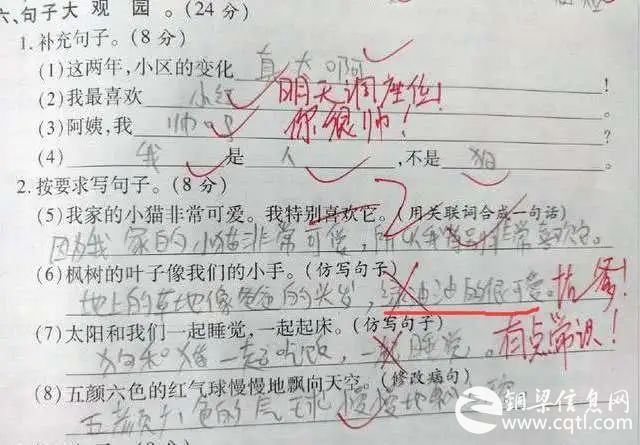 六、句子大观园。(24分)
1.补充句子。(8分)
(1)这两年,小区的变化真大啊!
(2)我最喜欢小红! 明天调座位!
(3)阿姨,我帅吗? 你很帅!
(4)我是人,不是狗
2.按要求写句子。(8分)
(5)我家的小猫非常可爱。我特别喜欢它。(用关联词合成一句话)
因为我家的小猫非常可爱,所以我特别非常喜欢它。
(6)枫树的叶子像我们的小手。(仿写句子)
地上的草地像爸爸的头发,绿油油的很可爱。
(7)太阳和我们一起睡觉,一起起床。(仿写句子)
狗和猫一起吃饭,一起睡觉。 有点常识!
(8)五颜六色的红气球慢慢地飘向天空。(修改病句)
五颜六色的气球慢慢地
铜梁信息网
www.cqtl.com